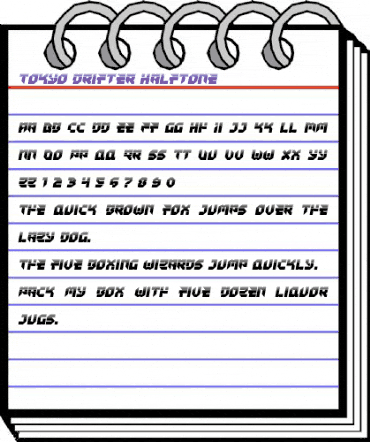 TOKYO DRIFTER HALFTONE
AA BB CC DD EE FF GG HH II JJ KK LL MM
NN OO PP QQ RR SS TT UU VV WW XX YY
ZZ 1 2 3 4 5 6 7 8 9 0
THE QUICK BROWN FOX JUMPS OVER THE
LAZY DOG.
THE FIVE BOXING WIZARDS JUMP QUICKLY.
PACK MY BOX WITH FIVE DOZEN LIQUOR
JUGS.